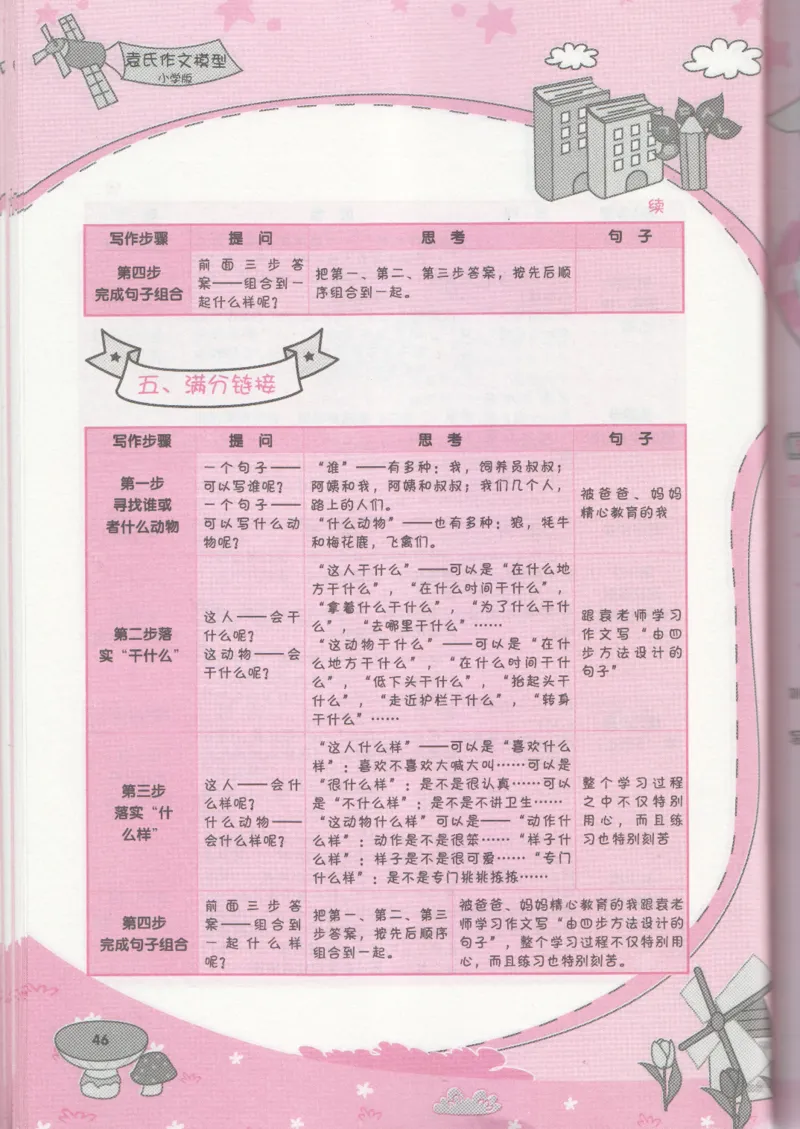 袁氏作文模型
小学版
续
写作步骤 提 问 思 考 句 子
第四步
完成句子组合
前面三步答
案——组合到一
起什么样呢？
把第一、第二、第三步答案，按先后顺
序组合到一起。
五、满分链接
写作步骤 提 问 思 考 句 子
第一步
寻找谁或
者什么动物
一个句子——
可以写谁呢？
一个句子——
可以写什么动
物呢？
“谁”——有多种：我，饲养员叔叔；
阿姨和我，阿姨和叔叔；我们几个人，
路上的人们。
“什么动物”——也有多种：狼，牦牛
和梅花鹿，飞禽们。
被爸爸、妈妈
精心教育的我
第二步落
实“干什么”
这人——会干
什么呢？
这动物——会
干什么呢？
“这人干什么”——可以是“在什么地
方干什么”，“在什么时间干什么”，
“拿着什么干什么”，“为了什么干什
么”，“去哪里干什么”……
“这动物干什么”——可以是“在什
么地方干什么”，“在什么时间干什
么”，“低下头干什么”，“抬起头干
什么”，“走近护栏干什么”，“转身
干什么”……
跟袁老师学习
作文写“由四
步方法设计的
句子”
第三步
落实“什
么样”
这人——会什
么样呢？
什么动物——
会什么样呢？
“这人什么样”——可以是“喜欢什么
样”：喜欢不喜欢大喊大叫……可以是
“很什么样”：是不是很认真……可以
是“不什么样”：是不是不讲卫生……
“这动物什么样”可以是——“动作什
么样”：动作是不是很笨……“样子什
么样”：样子是不是很可爱……“专门
什么样”：是不是专门挑挑拣拣……
整个学习过程
之中不仅特别
用心，而且练
习也特别刻苦
第四步
完成句子组合
前面三步答
案——组合到
一起什么样
呢？
把第一、第二、第三
步答案，按先后顺序
组合到一起。
被爸爸、妈妈精心教育的我跟袁老
师学习作文写“由四步方法设计的
句子”，整个学习过程不仅特别用
心，而且练习也特别刻苦。
46